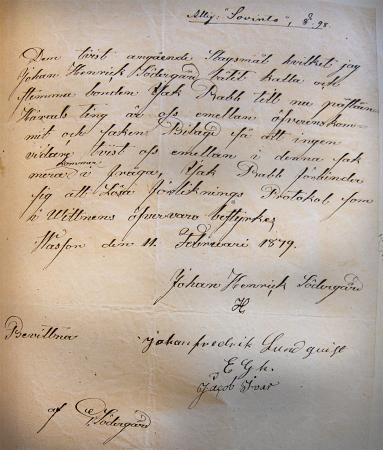 Attij: "Sovinto",
Den tvist angående Slagsmål hvilket jag
Johan Henrick Södergård låtit kalla och
stämma bonden Isak Rabb till nu påstående
ting är oss emellan öfverenskom-
mit och saken Bilagd så att ingen
vidare tvist oss emellan i denna sak
kommer
mera i fråga, Isak Rabb förbinder
sig att Lösa förliknings Protokoll som
i Wittnens öfvervaro bestyrkes
den 11 Februari 1879.
Johan Henrick Södergård
H
Bevittna
Johan fredrik Lundqvist
E Gh.
Jacob Ivar
af Södergård